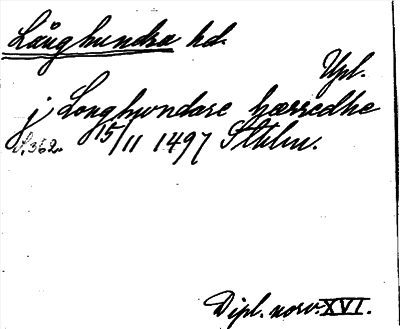 Långhundra hd.
Upl.
j Longhwndare hærredhe
S. 362. 15/11 1497 Sthlm.
Dipl. norv. XVI.